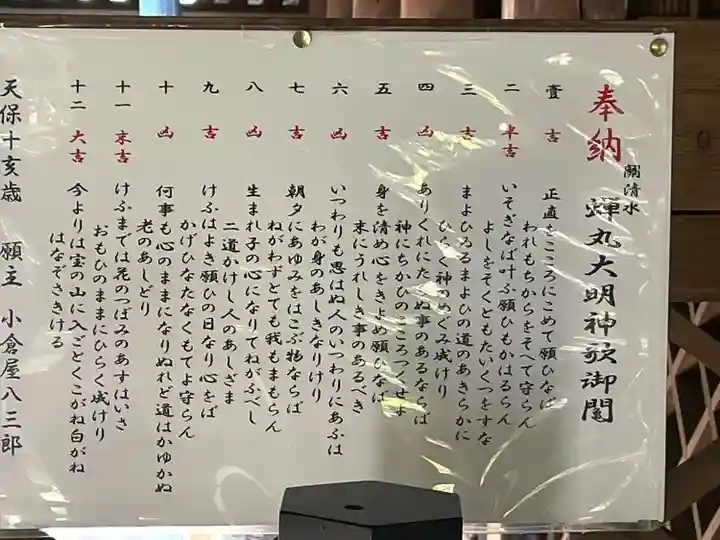 奉納 關清水 蝉丸大明神歌御鬮
壹 吉 正直をこころにこめて願ひなば
われもちからをそへて守らん
二 半吉 いそぎなば叶ふ願ひもかはるらん
よしをそくともたいくつをすな
三 吉 まよひゐるまよひの道のあきらかに
ひらく神のめぐみ成けり
四 凶 ありくれにたへぬ事のあるならば
神にちかひのこころつくせよ
五 吉 身を清め心をきよめ願ひなば
末にうれしき事のあるべき
六 凶 いつわりも思はぬ人のいつわりにあふは
わが身のあしきなりけり
七 吉 朝夕にあゆみをはこぶ物ならば
ねがわずとても我もまもらん
八 凶 生まれ子の心になりてねがふべし
二道かけし人のあしざま
九 吉 けふはよき願ひの日なり心をば
かげひなたなくもてよ守らん
十 凶 何事も心のままになりぬれど道はかゆかぬ
老のあしどり
十一 末吉 けふまでは花のつぼみのあすはいさ
おもひのままにひらく成けり
十二 大吉 今よりは宝の山に入ごとくこがね白がね
はなぞさきける
天保十亥歳 願主 小倉屋八三郎